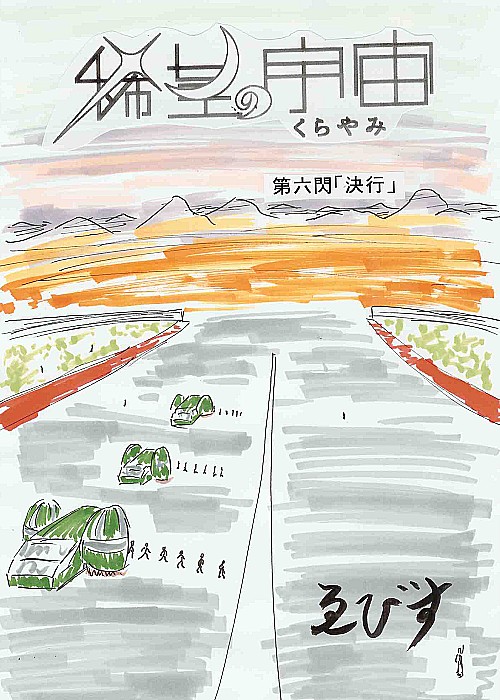 希望の宇宙
くらやみ
第六閃「決行」
ゑびす